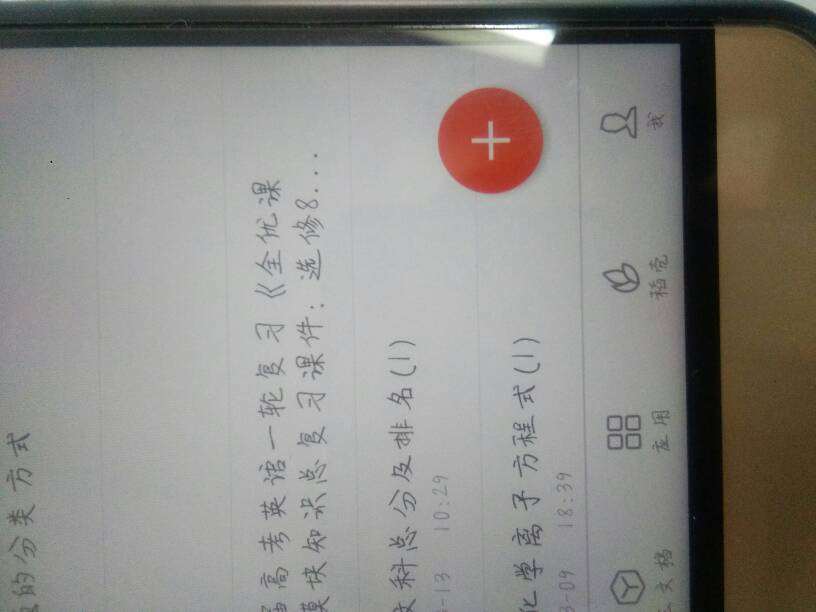 的分类方式
高考英语一轮复习《全优课
模块知识总复习课件：选修8...
文科总分及排名(1)
-13 10:29
化学离子方程式(1)
3-09 18:39
文档
应用
稻壳
我